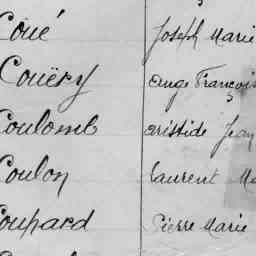 Coué Joseph Marie
Couëry Ange François
Coulomb Aristide Jean
Coulon Laurent
Coupard Pierre Marie